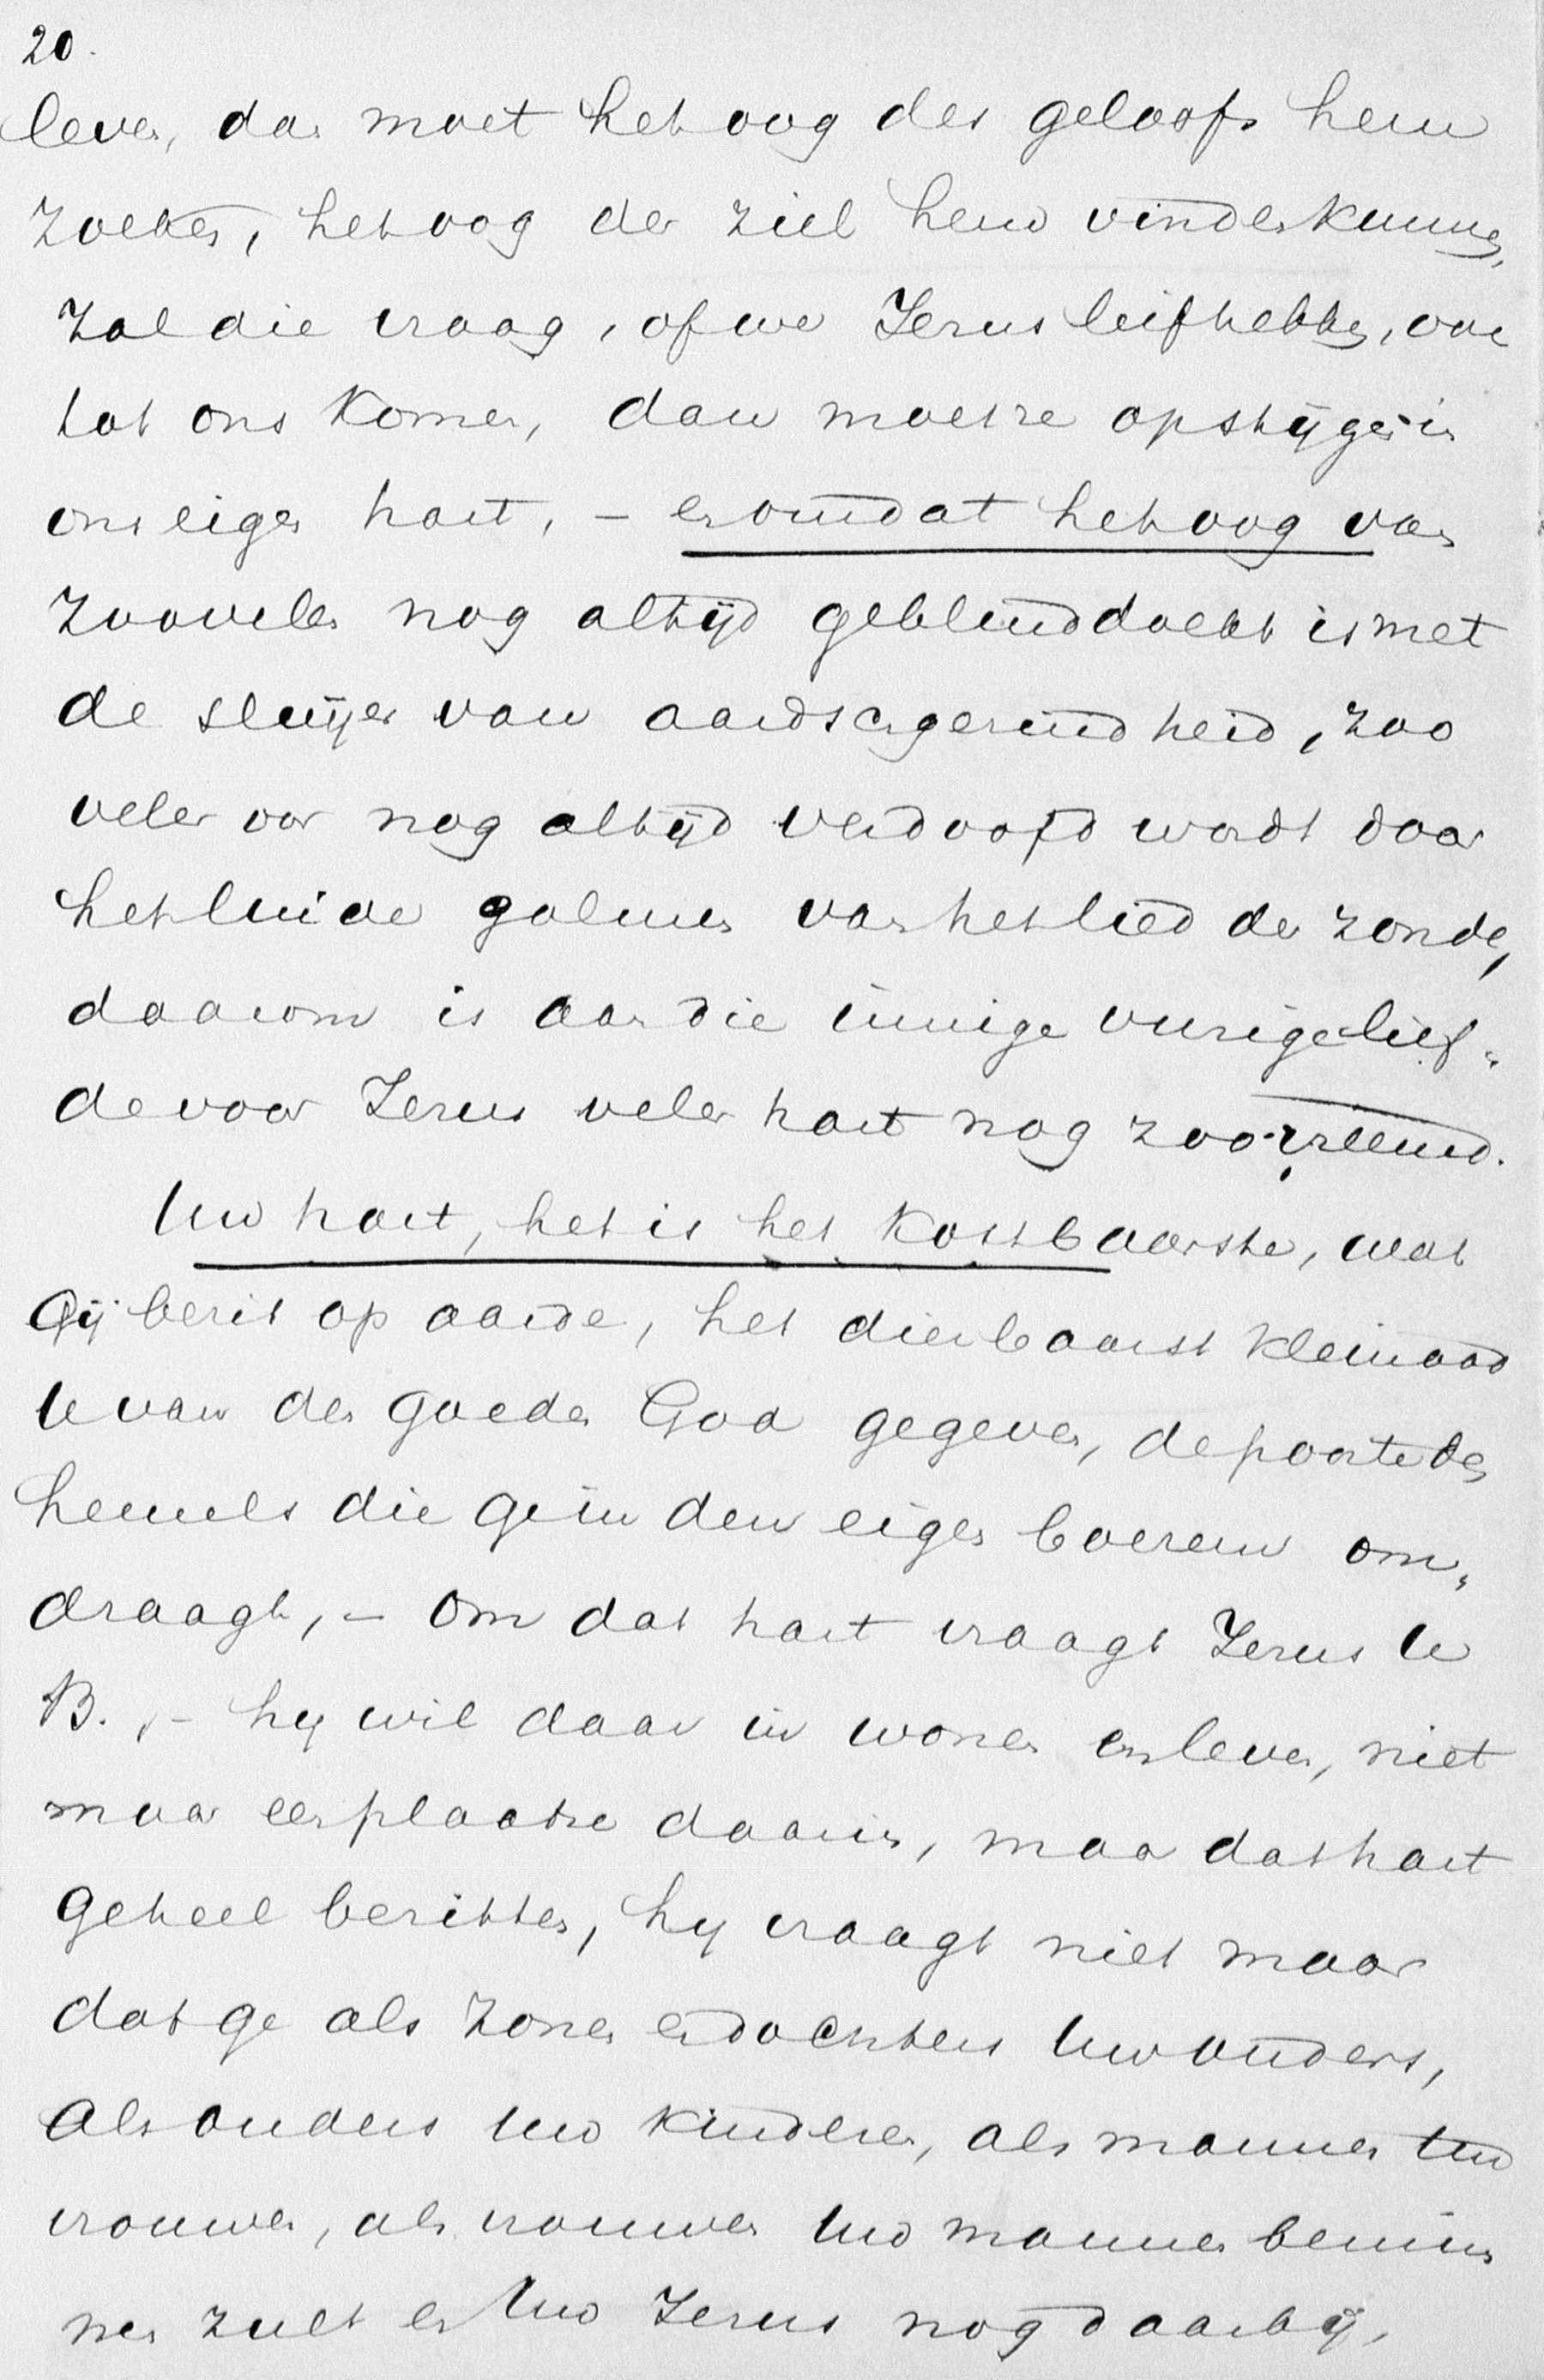 20.
leven, dan moet het oog des geloofs hem
zoeken, het oog der ziel hem vinden kunnen,
zal die vraag, of we Jezus liefhebben, van
tot ons komen, dan moet ze opstijgen in
ons eigen hart, - en omdat het oog van
zoovelen nog altijd geblinddoekt is met
de sluijer van aardschgezindheid, zoo
veler oor nog altijd verdoofd wordt door
het luide galmen van het lied der zonde,
daarom is aan die innige vurige lief-
de voor Jezus veler hart nog zoo vreemd.
Uw hart, het is het kostbaarste, wat
Gij bezit op aarde, het dierbaarst kleinood
U van den goeden God gegeven, de poorte des
hemels die ge in den eigen boezem om-
draagt, - om dat hart vraagt Jezus U
B., - hij wil daar in wonen en leven, niet
maar een plaatse daarin, maar dat hart
geheel bezitten, hij vraagt niet maar
dat ge als zonen en dochters Uw ouders,
als ouders Uw kinderen, als mannen Uw
vrouwen, als vrouwen Uw mannen bemin
nen zult en Uw Jezus nog daarbij,